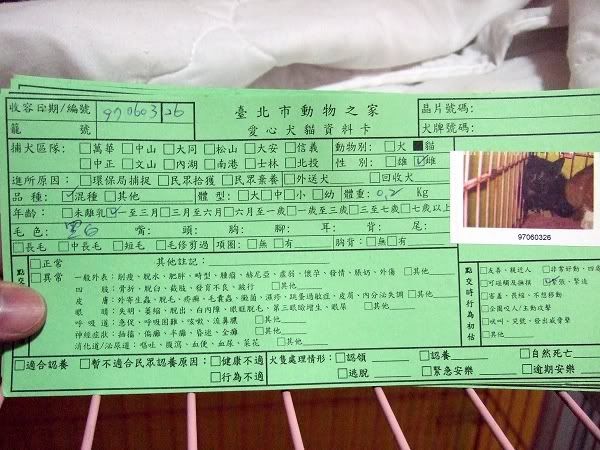 收容日期/編號 970603 26 臺北市動物之家 晶片號碼:
籠 號 愛心犬貓資料卡 犬牌號碼:
捕犬區隊: □萬華 □中山 □大同 □松山 □大安 □信義 動物別: □犬 ■貓
□中正 □文山 □內湖 □南港 □士林 □北投 性 別: □雄 ☑雌
進所原因: □環保局捕捉 □民眾拾獲 □民眾棄養 □外送犬 □回收犬
品 種: ☑混種 □其他 體 型: □大 □中 □小 □幼 體重: 0.2 Kg
年齡: □未離乳 ☑一至三月 □三月至六月 □六月至一歲 □一歲至三歲 □三至七歲 □七歲以上
毛 色: 黑 嘴: 頭: 胸: 腳: 耳: 背: 尾:
□長毛 □中長毛 □短毛 □毛修剪過 項圈: □無 □有 胸背: □無 □有
97060326
點交 □正常 其他註記:
□異常 一般外表: 削瘦、脫水、肥胖、畸型、腫瘤、赫尼亞、虛弱、懷孕、發情、脹奶、外傷 □其他
四 肢: 骨折、脫臼、截肢、發育不良、跛行 □其他
皮 膚: 外寄生蟲、脫毛、疥癬、毛囊蟲、黴菌、濕疹、跳蚤過敏症、皮屑、內分泌失調 □其他
眼 睛: 失明、萎縮、脫出、白內障、眼眶脫毛、第三眼瞼增生、眼屎 □其他
呼 吸 道: 急促、呼吸困難、咳嗽、流鼻膿 □其他
神經症狀: 抽搐、偏癱、半癱、昏迷、全癱 □其他
消化道/泌尿道: 嘔吐、腹瀉、血便、血尿、菜花 □其他
點交時行為初估 □友善、親近人 □非常好動、四處
□可碰觸及撫摸 ☑緊張、緊迫
□害羞、畏縮、不想移動
□企圖咬人/主動攻擊
□吠叫、兇猛、發出威脅聲
□其他
□適合認養 □暫不適合民眾認養原因: □健康不適 犬隻處理情形: □認領 □認養 □自然死亡
□行為不適 □逃脫 □緊急安樂 □逾期安樂